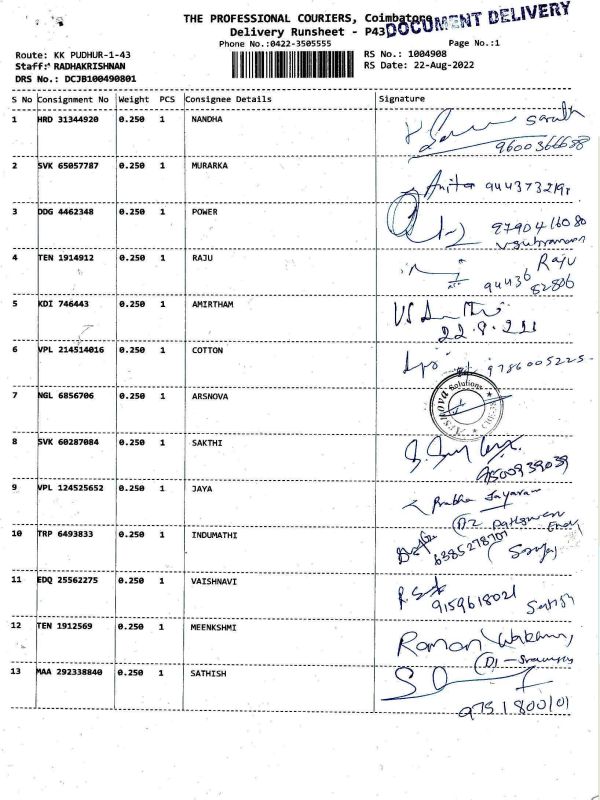 THE PROFESSIONAL COURIERS, Coimbatore
DOCUMENT DELIVERY
Delivery Runsheet - P43
Phone No.:0422-3505555 Page No.:1
Route: KK PUDHUR-1-43 RS No.: 1004908
Staff: RADHAKRISHNAN RS Date: 22-Aug-2022
DRS No.: DCJB100490801
S No Consignment No Weight PCS Consignee Details Signature
1 HRD 31344920 0.250 1 NANDHA Sarath
9600366638
2 SVK 65057787 0.250 1 MURARKA Anita
3 DDG 4462348 0.250 1 POWER 9790416080
4 TEN 1914912 0.250 1 RAJU Raju
94436
82806
5 KDI 746443 0.250 1 AMIRTHAM
22.8.22
6 VPL 214514016 0.250 1 COTTON 9786005225
7 NGL 6856706 0.250 1 ARSNOVA Arsnova Solutions
8 SVK 60287084 0.250 1 SAKTHI
9500939039
9 VPL 124525652 0.250 1 JAYA Prabha Jayaram
10 TRP 6493833 0.250 1 INDUMATHI 6385278707
11 EDQ 25562275 0.250 1 VAISHNAVI
9159618021 Satish
12 TEN 1912569 0.250 1 MEENKSHMI Raman
13 MAA 292338840 0.250 1 SATHISH
9751800101